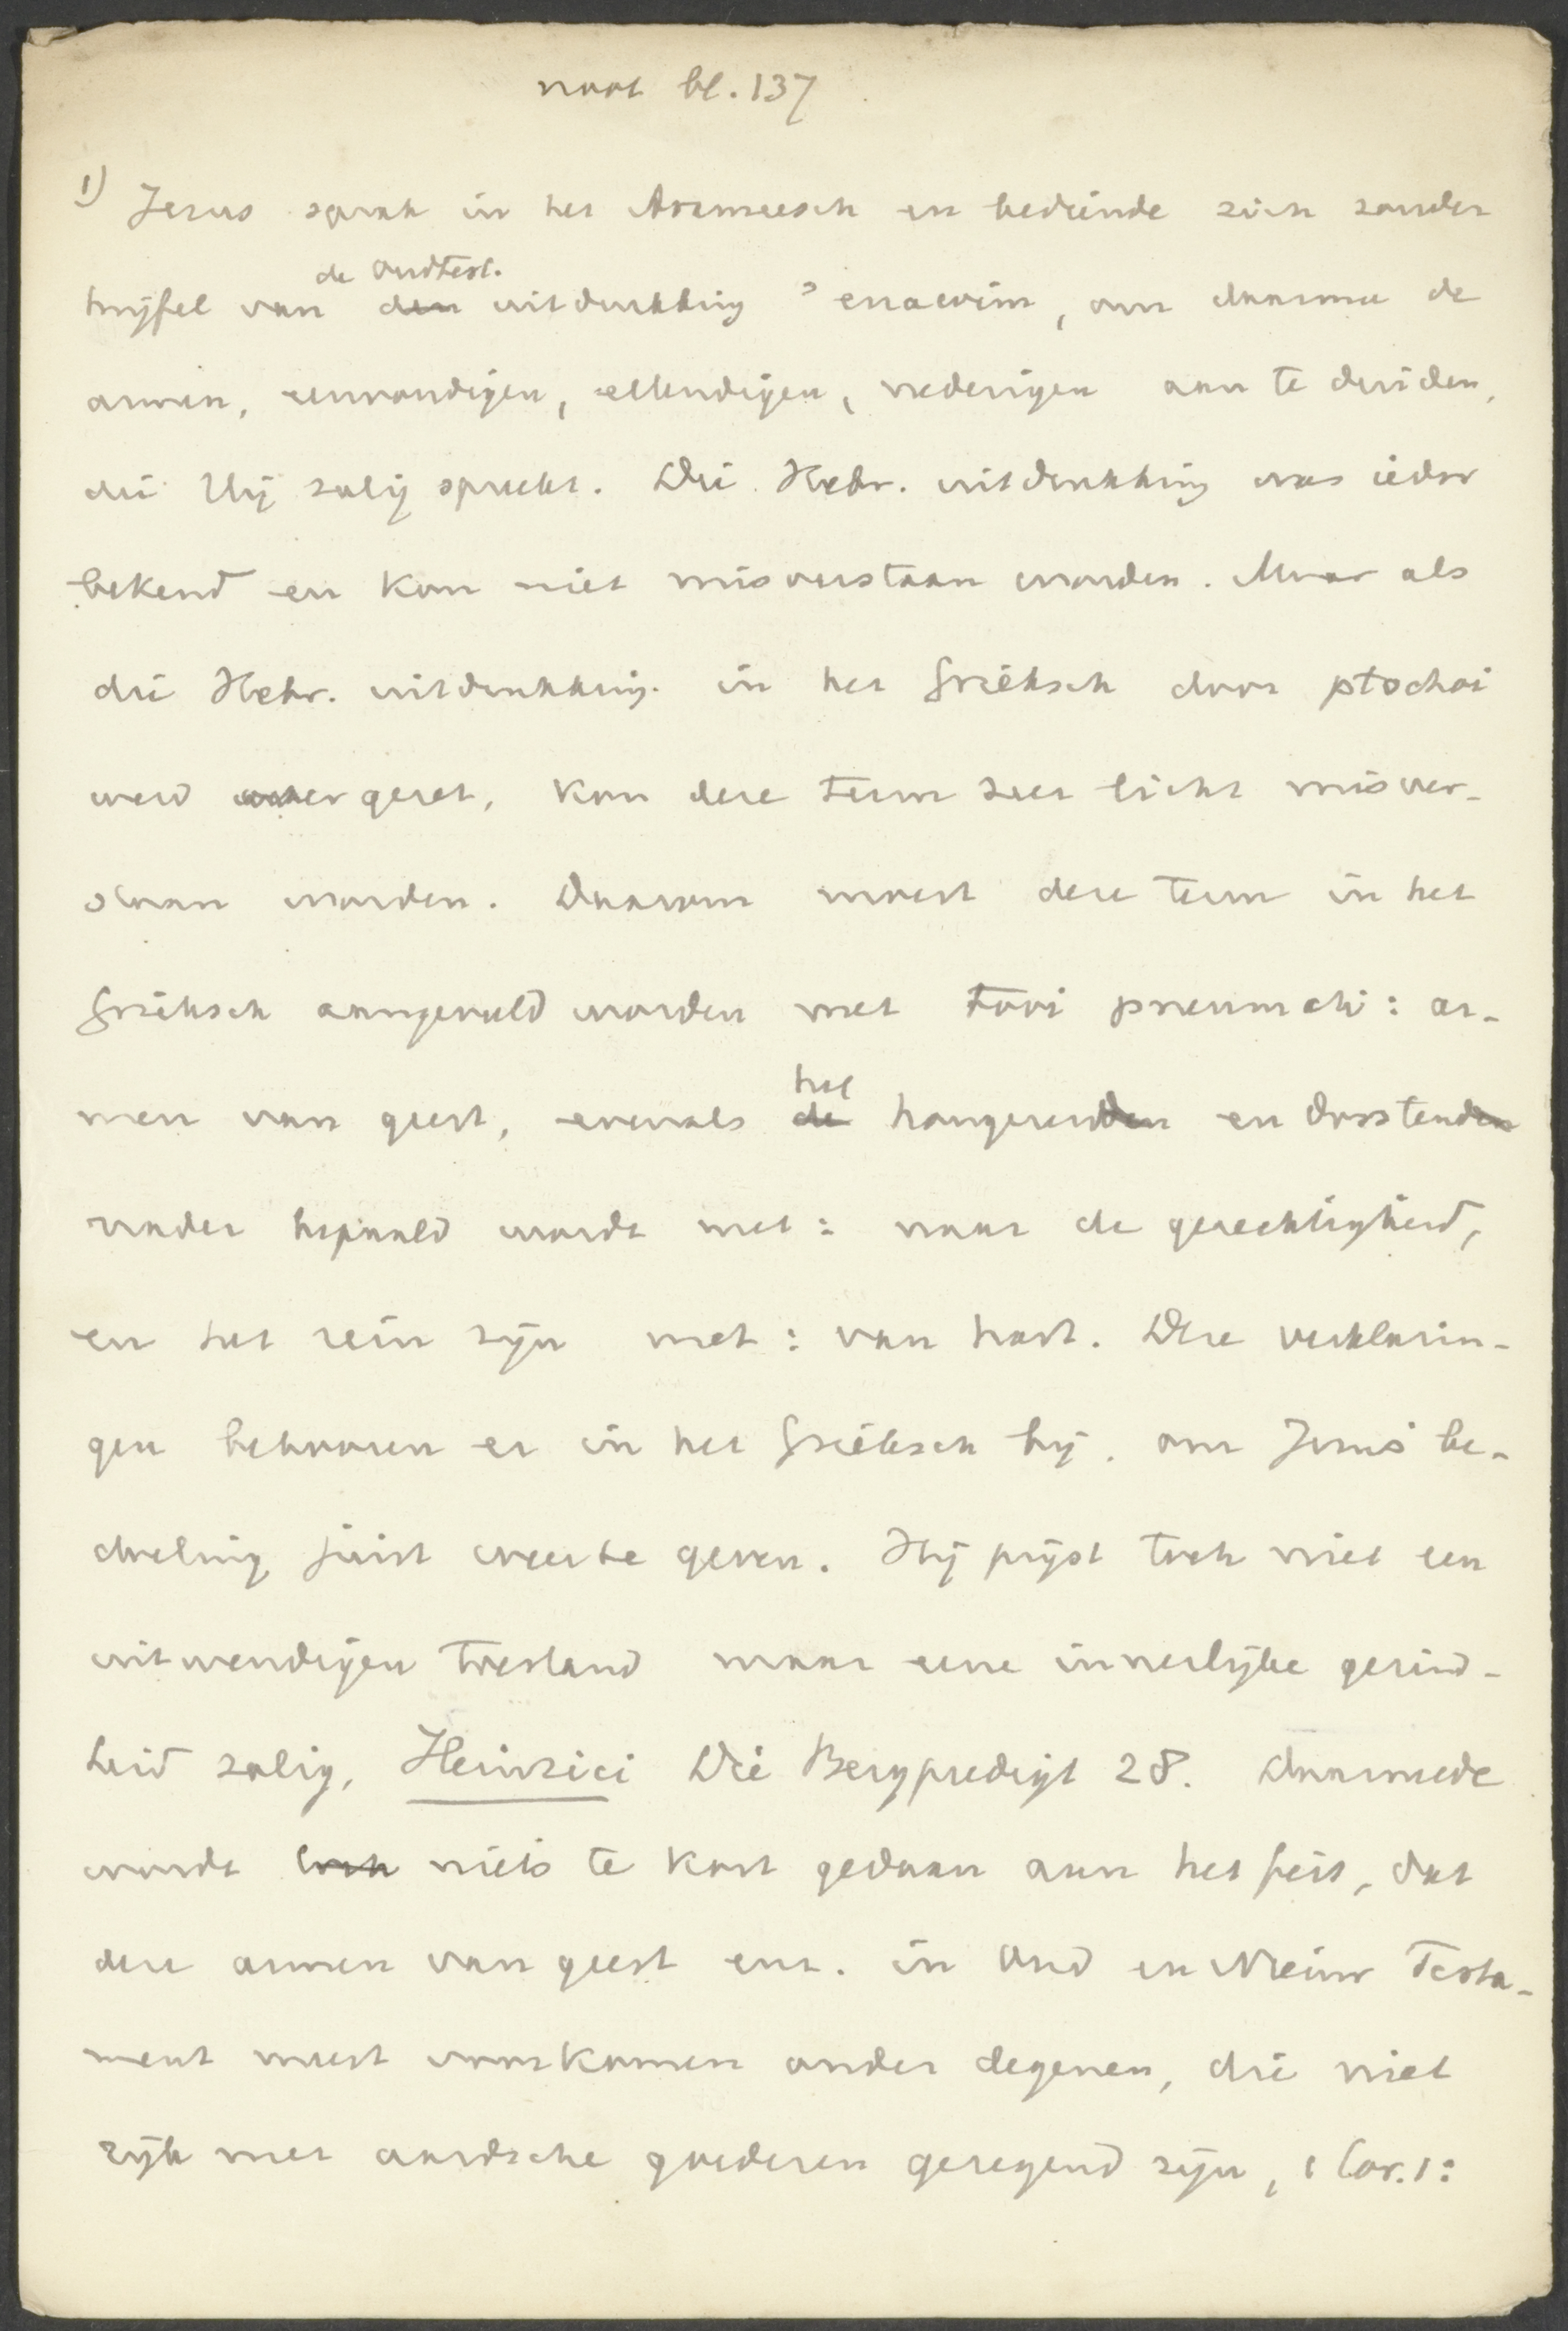 noot bl. 137
1) Jezus sprak in het Arameesch en bediende zich zonder
de Oudtest.
twijfel van den uitdrukking ʾenawim, om daarmee de
armen, eenvoudigen, ellendigen, nederigen aan te duiden,
die Hij zalig spreekt. Die Hebr. uitdrukking was ieder
bekend en kon niet misverstaan worden. Maar als
die Hebr. uitdrukking in het Grieksch door ptochoi
werd overgezet, kon deze term zeer licht misver-
staan worden. Daarom moest deze term in het
Grieksch aangevuld worden met tooi pneumati: ar-
men van geest, evenals
het
de hongerenden en dorstenden
nader bepaald wordt met: naar de gerechtigheid,
en het rein zijn met: van hart. Deze verklarin-
gen behooren er in het Grieksch bij, om Jezus' be-
doeling juist weerte geven. Hij prijst toch niet een
uitwendigen toestand maar eene innerlijke gezind-
heid zalig, Heinrici Die Bergpredigt 28. Daarmede
wordt toch niets te kort gedaan aan het feit, dat
deze armen van geest enz. in Oud en Nieuw Testa-
ment meest voorkomen onder degenen, die niet
rijk met aardsche goederen gezegend zijn, 1 Cor. 1: